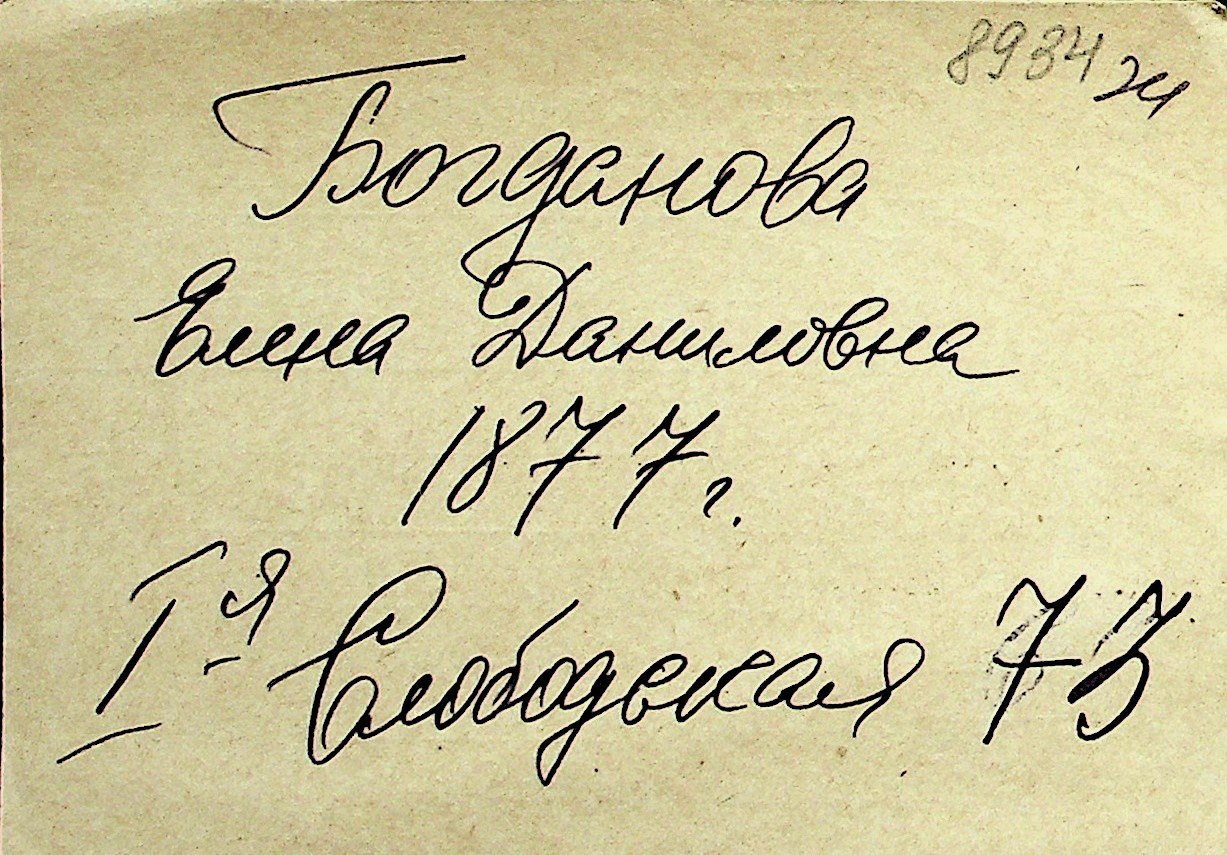 8934 ж
Богданова
Елена Даниловна
1877 г.
I-я Слободская 73